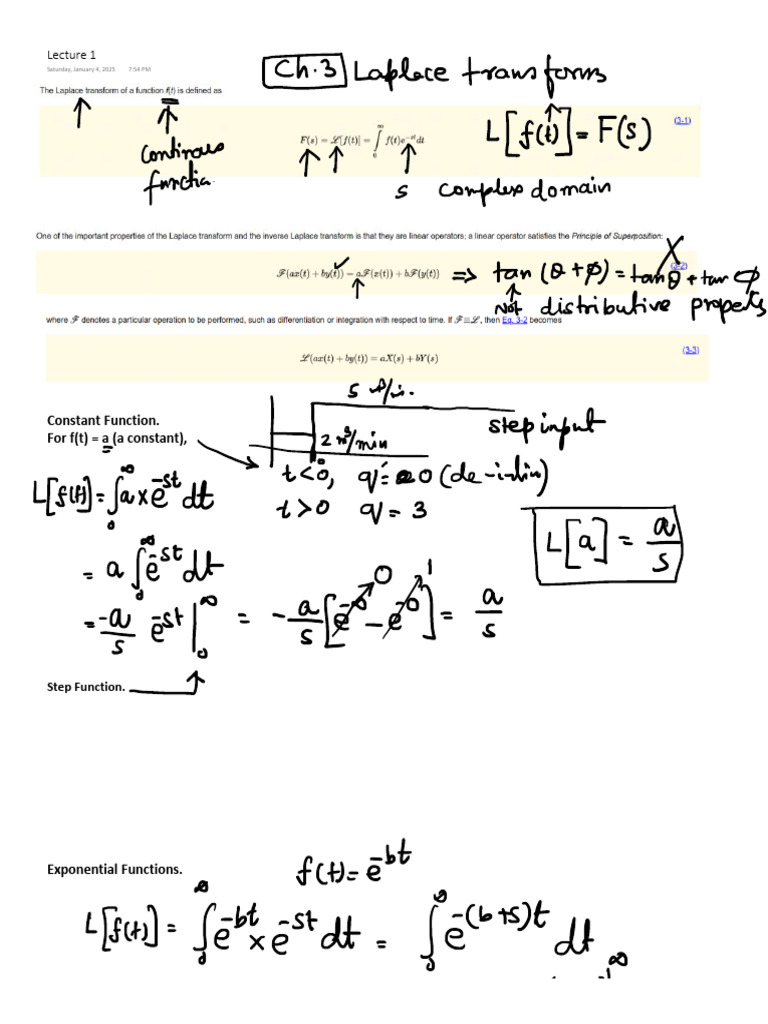 Lecture 1
Saturday, January 4, 2025 7:54 PM
Ch.3 Laplace transforms
The Laplace transform of a function f(t) is defined as
F(s) = ℒ[f(t)] = ∫₀^∞ f(t)e^{-st}dt
(3-1)
L[f(t)] = F(s)
Continous
functio.
s complex domain
One of the important properties of the Laplace transform and the inverse Laplace transform is that they are linear operators; a linear operator satisfies the Principle of Superposition:
ℱ(ax(t) + by(t)) = aℱ(x(t)) + bℱ(y(t))
(3-2)
⇒ tan (θ + φ) = tan θ + tan φ
Not distributive property
where ℱ denotes a particular operation to be performed, such as differentiation or integration with respect to time. If ℱ ≡ ℒ, then Eq. 3-2 becomes
ℒ(ax(t) + by(t)) = aX(s) + bY(s)
(3-3)
Constant Function.
For f(t) = a (a constant),
step input
2 m³/min
t<0, q' = 0
t>0 q = 3
L[f(t)] = ∫₀^∞ a × e^{-st} dt
= a ∫₀^∞ e^{-st} dt
= -a/s e^{-st} |₀^∞ = -a/s [e^{-∞} - e^{-0}] = a/s
0 1
L[a] = a/s
Step Function.
Exponential Functions.
f(t) = e^{-bt}
L[f(t)] = ∫₀^∞ e^{-bt} × e^{-st} dt = ∫₀^∞ e^{-(b+s)t} dt
∞